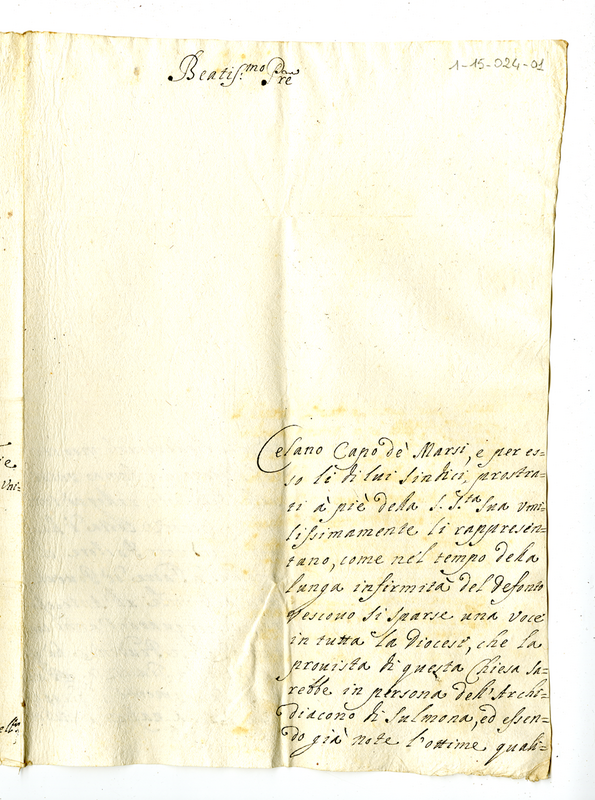 1-15-024-01
Beatis:mo Pre
Cesano Capo de' Marsi, e per es=
so li di lui Sindici, prostra=
ti à piè della S. Sta Sua vmi=
lissimamente li rappresen=
tano, come nel tempo della
lunga infirmità del defonto
Vescovo si sparse una voce
in tutta la Diocesi, che la
provista di questa Chiesa sa=
rebbe in persona dell'Archi=
diacono di Sulmona, ed essen=
do già note l'ottime quali=
vni=